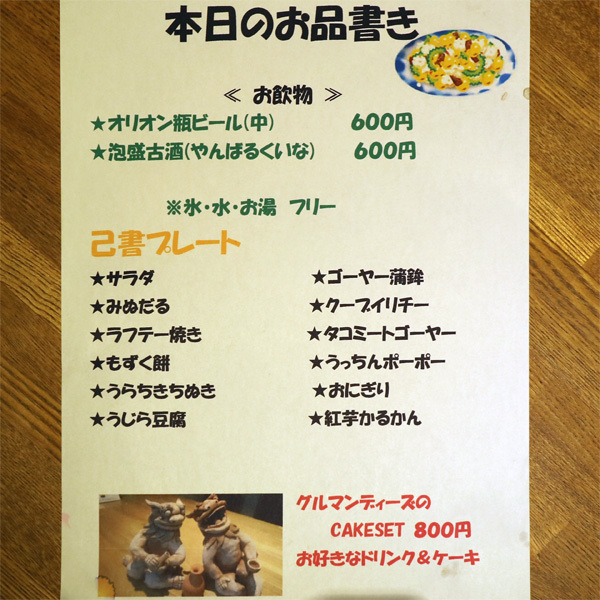 本日のお品書き
≪ お飲物 ≫
★オリオン瓶ビール(中) 600円
★泡盛古酒(やんばるくいな) 600円
※氷・水・お湯 フリー
己書プレート
★サラダ ★ゴーヤー蒲鉾
★みぬだる ★クーブイリチー
★ラフテー焼き ★タコミートゴーヤー
★もずく餅 ★うっちんポーポー
★うらちきちぬき ★おにぎり
★うじら豆腐 ★紅芋かるかん
グルマンディーズの
CAKESET 800円
お好きなドリンク&ケーキ